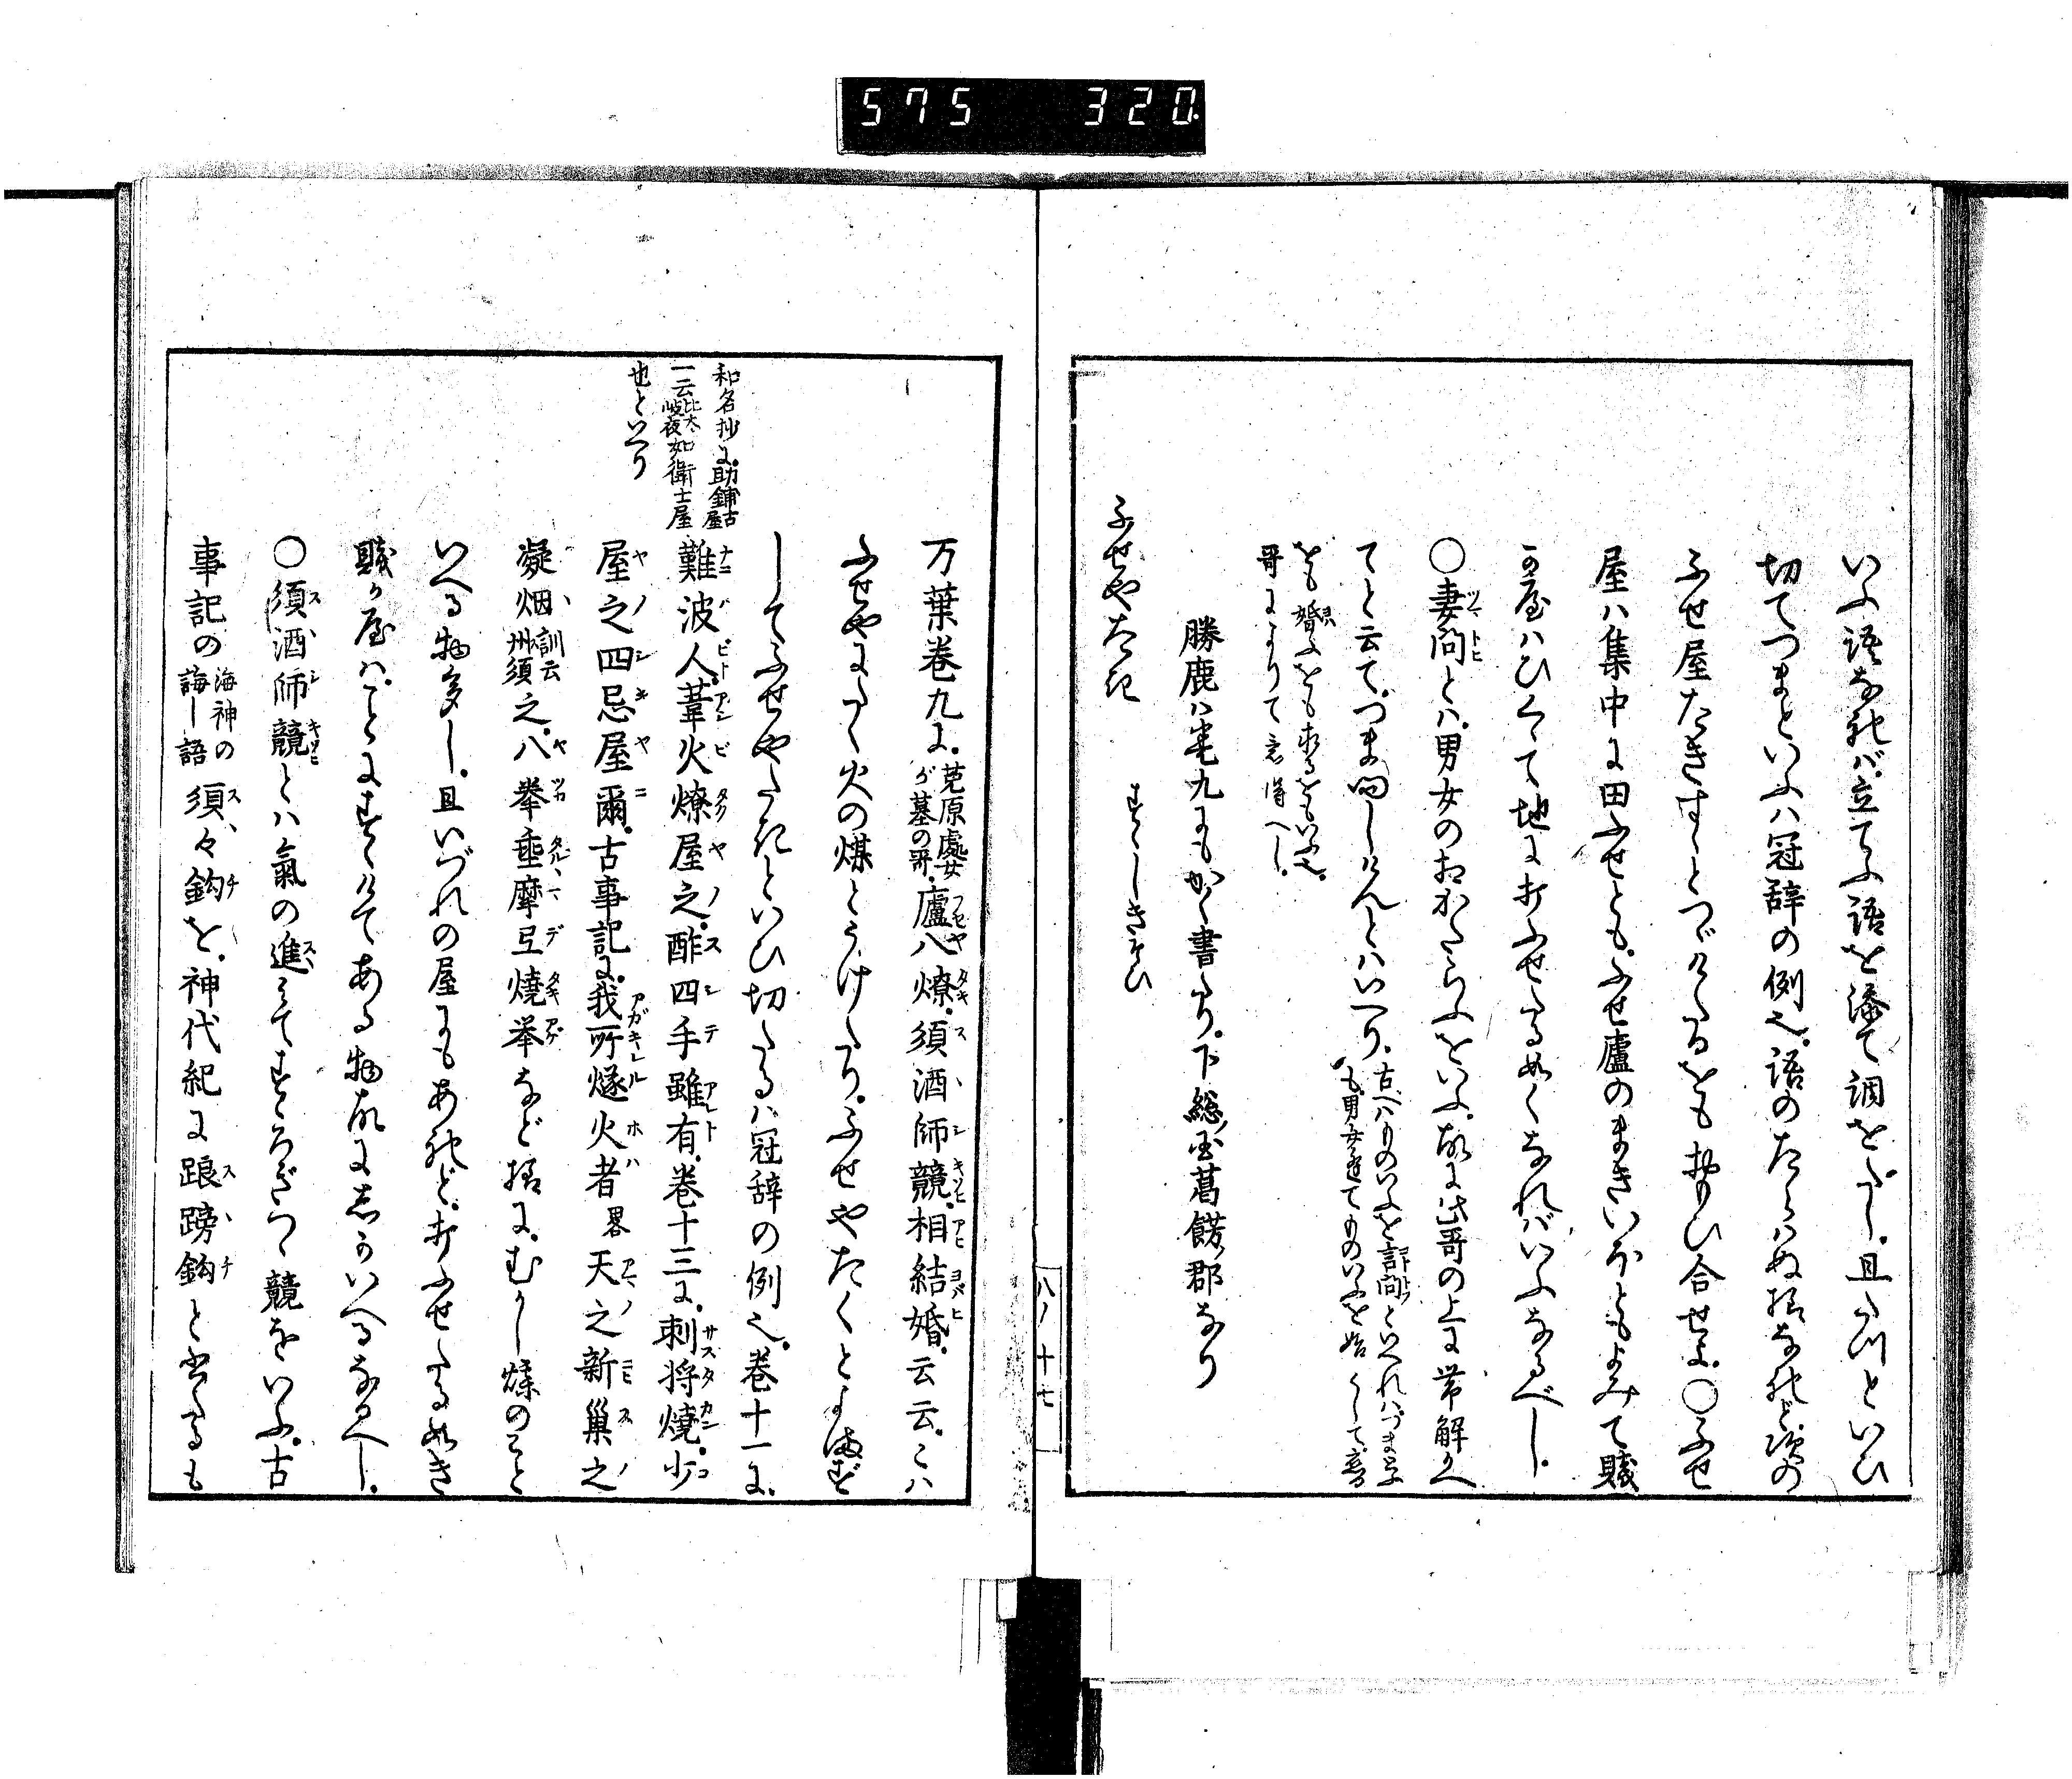 575 320
いふ語なれバ立てふ語を添て調をなし且たりといひ
切てつまといふハ冠辞の例也語のたらハぬ様なれど次の
ふせ屋たきすゝとつゞけたるをも思ひ合せよ〇ふせ
屋ハ集中に田ふせともふせ廬のまきいほともよみて賤
か屋ハひくゝて地に打ふせたる如くなれバいふなるべし
〇妻問とハ男女のかたらふをいふ故に此哥の上に帯解かへ
てと云てつま問しけんとハいへり
古へハものいふを言問といへれバつま
も男女逢てものいふを始
をも婚ふをもいふ也
哥によりて意得へし
勝鹿ハ巻九にもかく書たり下総国葛餝郡なり
ふせやたき
すゝしきそひ
八ノ十七
万葉巻九に
菟原處女
が墓の哥
廬八燎須酒師競相結婚云云こハ
ふせやにたく火の煤とつゞけたりふせやたくとよまず
してふせやたきといひ切たるハ冠辞の例也巻十一に
難波人葦火燎屋之酢四手雖有巻十三に刺将燒少
屋之四忌屋爾古事記に我所燧火者畧天之新巣之
凝烟
訓云
州須
之八拳垂摩弖燒挙など様にむかし煤のこと
いへる物多し且いづれの屋にもあれど打ふせたる如き
賤か屋ハことにすゝけてある物故にしかいへるなるへし
〇須酒師競とハ氣の進みてすゝろぎつゝ競をいふ古
事記の
海神の
誨し語
須々鈎を神代紀に踉䠙鈎と書たるも
和名抄に助鋪古
屋
一云比太
岐夜
如衛士屋
也といへり